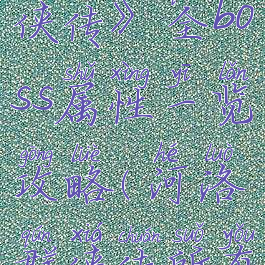 侠传》全bo
shǔ xìng yī lǎn
ss属性一览
gōng lüè hé luò
攻略(河洛
qún xiá chuán suǒ yǒu
群侠传所有